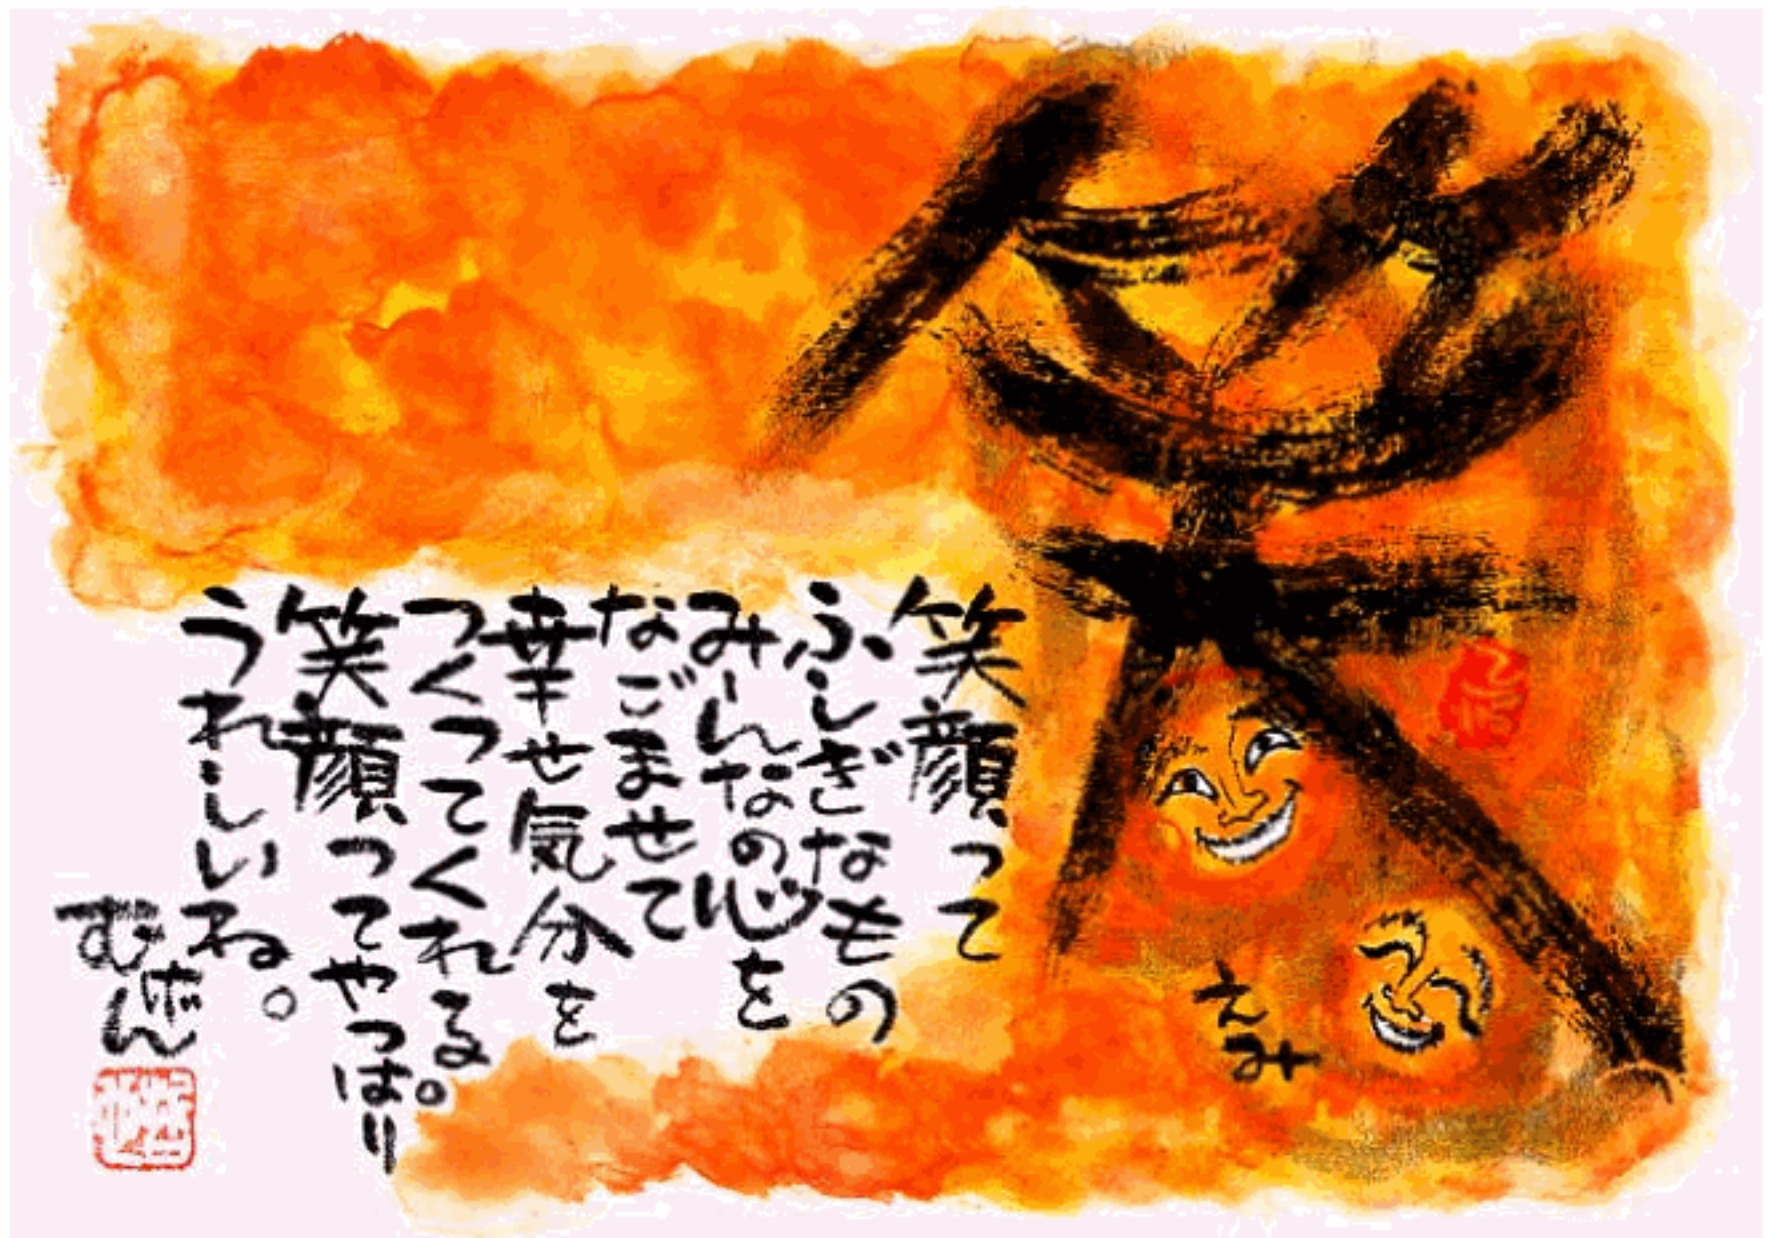 笑
えみ
笑顔って
ふしぎなもの
みーんなの心を
なごませて
幸せ気分を
つくってくれる。
笑顔ってやっぱり
うれしいね。
むげん